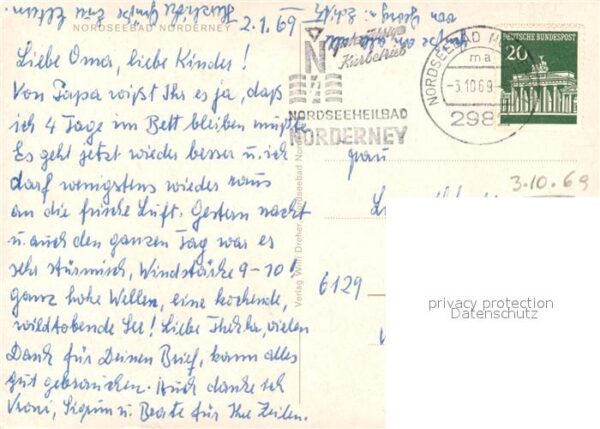 2.1.69
NORDSEEBAD NORDERNEY
Liebe Oma, liebe Kinder!
Von Papa wißt Ihr es ja, daß
ich 4 Tage im Bett bleiben mußte.
Es geht jetzt wieder besser u. ich
darf wenigstens wieder raus
an die frische Luft. Gestern nacht
u. auch den ganzen Tag war es
sehr stürmisch, Windstärke 9-10!
Ganz hohe Wellen, eine kochende,
wildtobende See! Liebe Thekla, vielen
Dank für Deinen Brief, kann alles
gut gebrauchen. Auch danke ich
Vroni, Sigrun u. Beate für Ihre Zeilen.
Herzliche Grüße
von Georg u.
Verlag Willi Dreher, Nordseebad
N
Kurbetrieb
NORDSEEHEILBAD
NORDERNEY
NORDSEEBAD
ma
-3.10.69
2982
DEUTSCHE BUNDESPOST
20
Frau
3.10.69
6129
privacy protection
Datenschutz